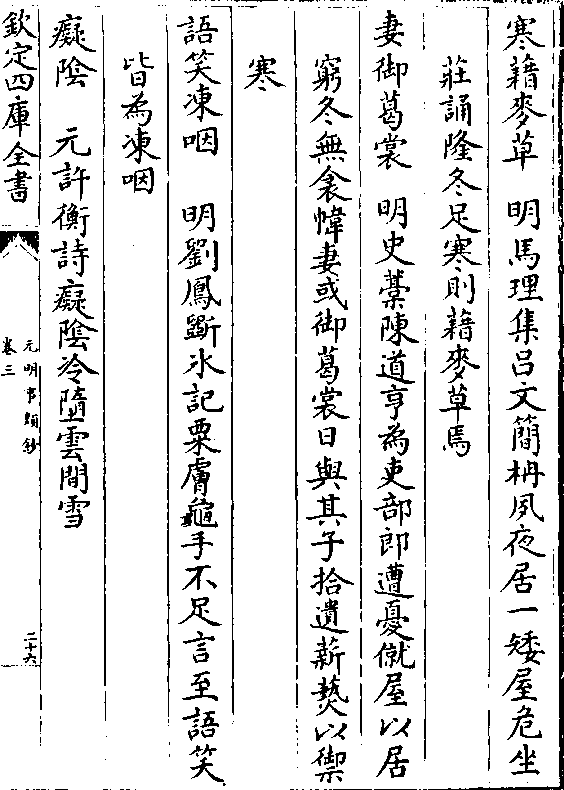 寒藉麥草　明馬理集呂文簡柟夙夜居一矮屋危坐
莊誦隆冬足寒則藉麥草焉
妻御葛裳　明史藁陳道亨為吏部郎遭憂僦屋以居
窮冬無衾幃妻或御葛裳日與其子拾遺薪爇以禦
寒
語笑凍咽　明劉鳳斲氷記粟膚龜手不足言至語笑
皆為凍咽
癡陰　元許衡詩癡陰冷墮雲間雪
欽定四庫全書
元明事類鈔
卷三
二十六